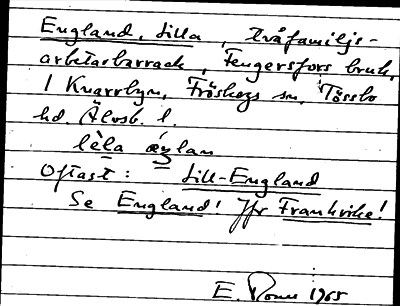 England, Lilla, tvåfamiljs-
arbetarbarrack, Fengersfors bruk,
i Knarrbyn, Fröskogs sn, Tössbo
hd. Älvsb. l.
lèla
Oftast: Lill-England
Se England! Jfr Frankrike!
E. 1965